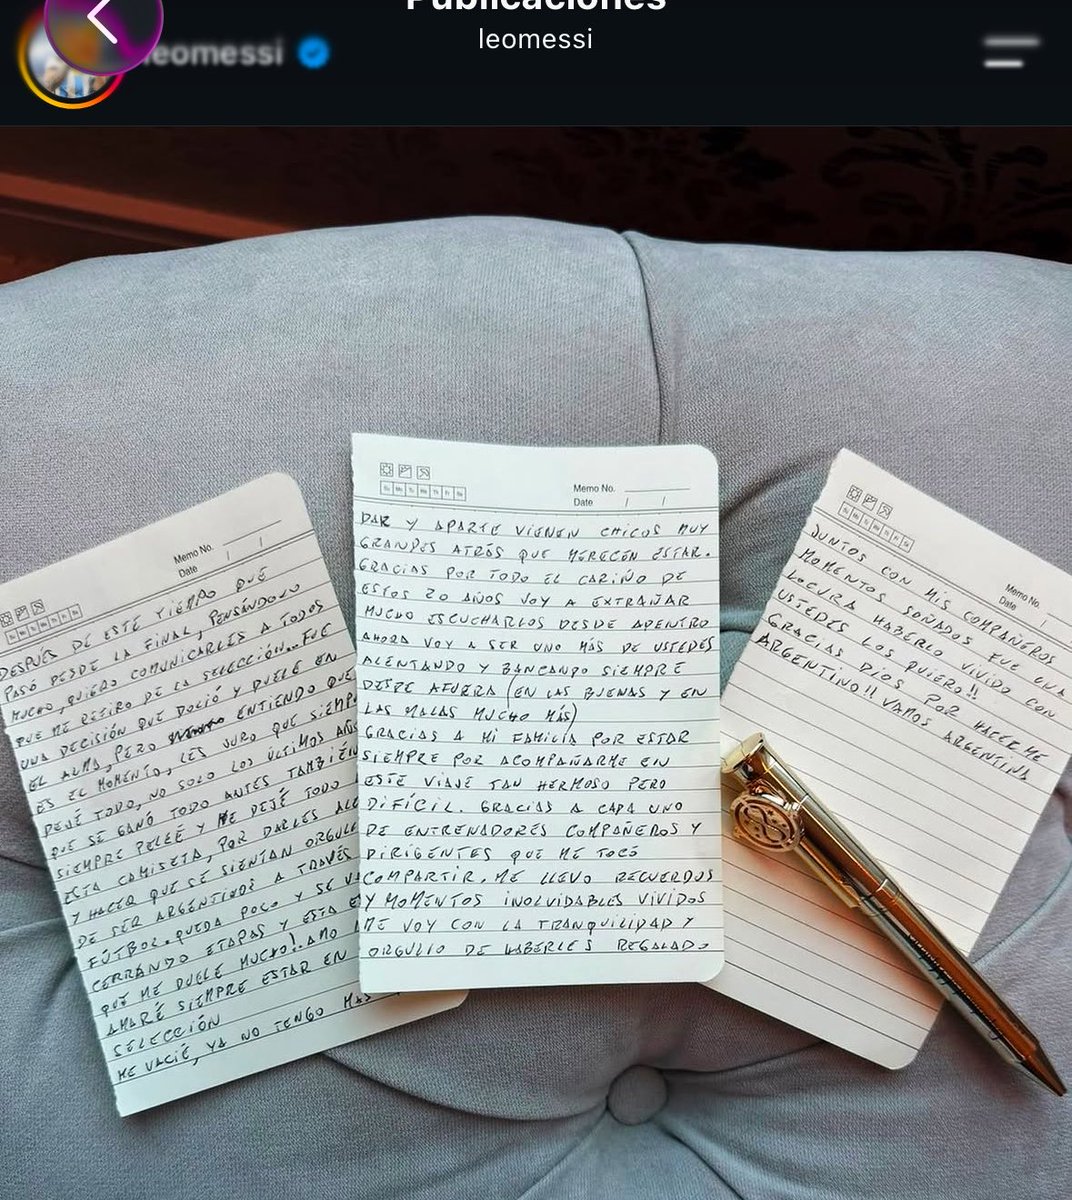 Publicaciones
leomessi
leomessi
Memo No.
Date / /
DESPUÉS DE ESTE TIEMPO QUE
PASÓ DESDE LA FINAL, PENSÁNDOLO
MUCHO, QUIERO COMUNICARLES A TODOS
QUE ME RETIRO DE LA SELECCIÓN... FUE
UNA DECISIÓN QUE DOLIÓ Y DUELE EN
EL ALMA, PERO ENTIENDO QUE
ES EL MOMENTO, LES JURO QUE SIEMP
DEJÉ TODO, NO SOLO LOS ÚLTIMOS AÑO
QUE SE GANÓ TODO ANTES TAMBIÉN
SIEMPRE PELEÉ Y ME DEJÉ TODO
ESTA CAMISETA, POR DARLES ALE
Y HACER QUE SE SIENTAN ORGULL
DE SER ARGENTINOS A TRAVÉS
FÚTBOL. QUEDA POCO Y SE VA
CERRANDO ETAPAS Y ESTA E
QUE ME DUELE MUCHO!. AMO
AMARÉ SIEMPRE ESTAR EN
SELECCIÓN
ME VACIÉ, YA NO TENGO MAS
Su Mo Tu We Th Fr Sa
Memo No.
Date / /
DAR Y APARTE VIENEN CHICOS MUY
GRANDES ATRÁS QUE MERECEN ESTAR.
GRACIAS POR TODO EL CARIÑO DE
ESTOS 20 AÑOS VOY A EXTRAÑAR
MUCHO ESCUCHARLOS DESDE ADENTRO
AHORA VOY A SER UNO MÁS DE USTEDES
ALENTANDO Y BANCANDO SIEMPRE
DESDE AFUERA (EN LAS BUENAS Y EN
LAS MALAS MUCHO MÁS)
GRACIAS A MI FAMILIA POR ESTAR
SIEMPRE POR ACOMPAÑARME EN
ESTE VIAJE TAN HERMOSO PERO
DIFÍCIL. GRACIAS A CADA UNO
DE ENTRENADORES COMPAÑEROS Y
DIRIGENTES QUE ME TOCÓ
COMPARTIR. ME LLEVO RECUERDOS
Y MOMENTOS INOLVIDABLES VIVIDOS
ME VOY CON LA TRANQUILIDAD Y
ORGULLO DE HABERLES REGALADO
Memo No.
Date /
JUNTOS CON MIS COMPAÑEROS
MOMENTOS SOÑADOS FUE UNA
LOCURA HABERLO VIVIDO CON
USTEDES LOS QUIERO!!
GRACIAS DIOS POR HACERME
ARGENTINO!! VAMOS
ARGENTINA